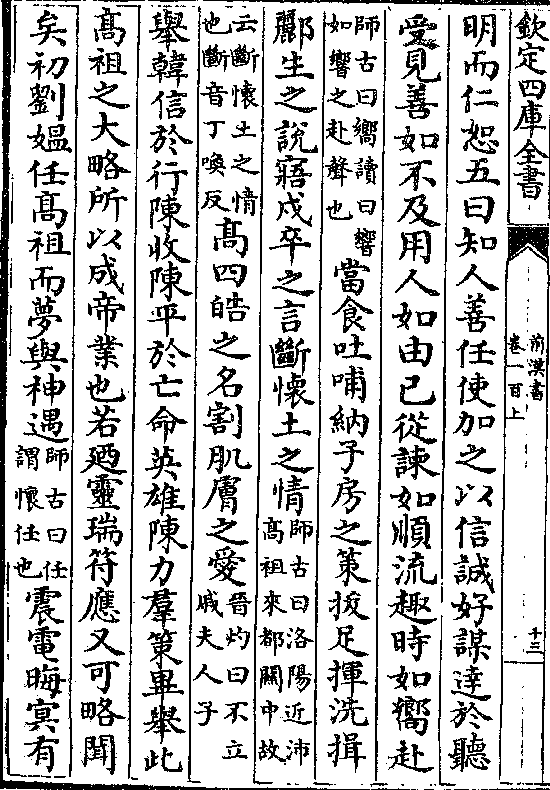 欽定四庫全書
前漢書
卷一百上
十三
明而仁恕五曰知人善任使加之以信誠好謀達於聽
受見善如不及用人如由已從諫如順流趣時如嚮赴
師古曰嚮讀曰響
如響之赴聲也
當食吐哺納子房之策拔足揮洗揖
酈生之說寤戍卒之言斷懷土之情
師古曰洛陽近沛
高祖來都關中故
云斷懷土之情
也斷音丁喚反
高四皓之名割肌膚之愛
晉灼曰不立
戚夫人子
舉韓信於行陳收陳平於亡命英雄陳力羣策畢舉此
髙祖之大略所以成帝業也若廼靈瑞符應又可略聞
矣初劉媪任髙祖而夢與神遇
師古曰任
謂懷任也
震電晦冥有